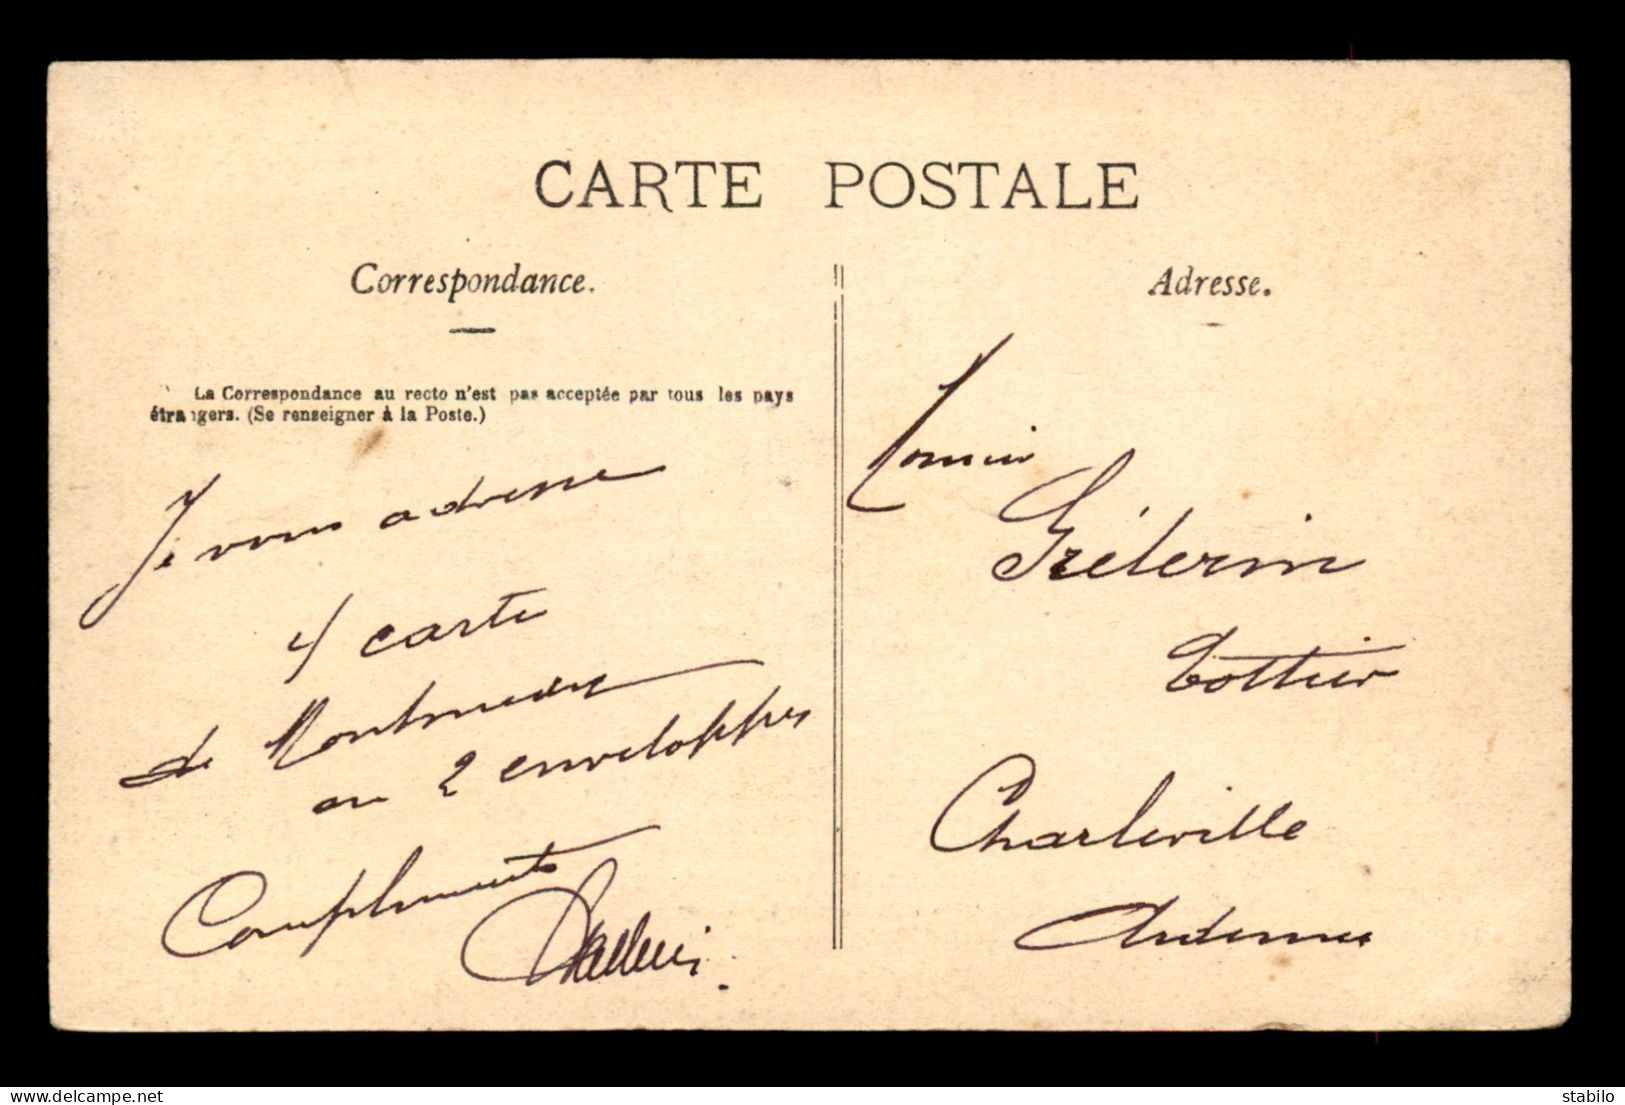 CARTE POSTALE
Correspondance.
La Correspondance au recto n'est pas acceptée par tous les pays
étrangers. (Se renseigner à la Poste.)
Je vous adresse
4 carte
de Montmédy
en 2 enveloppes
Compliments
Adresse.
Charleville
Ardennes
delcampe.net
stabilo